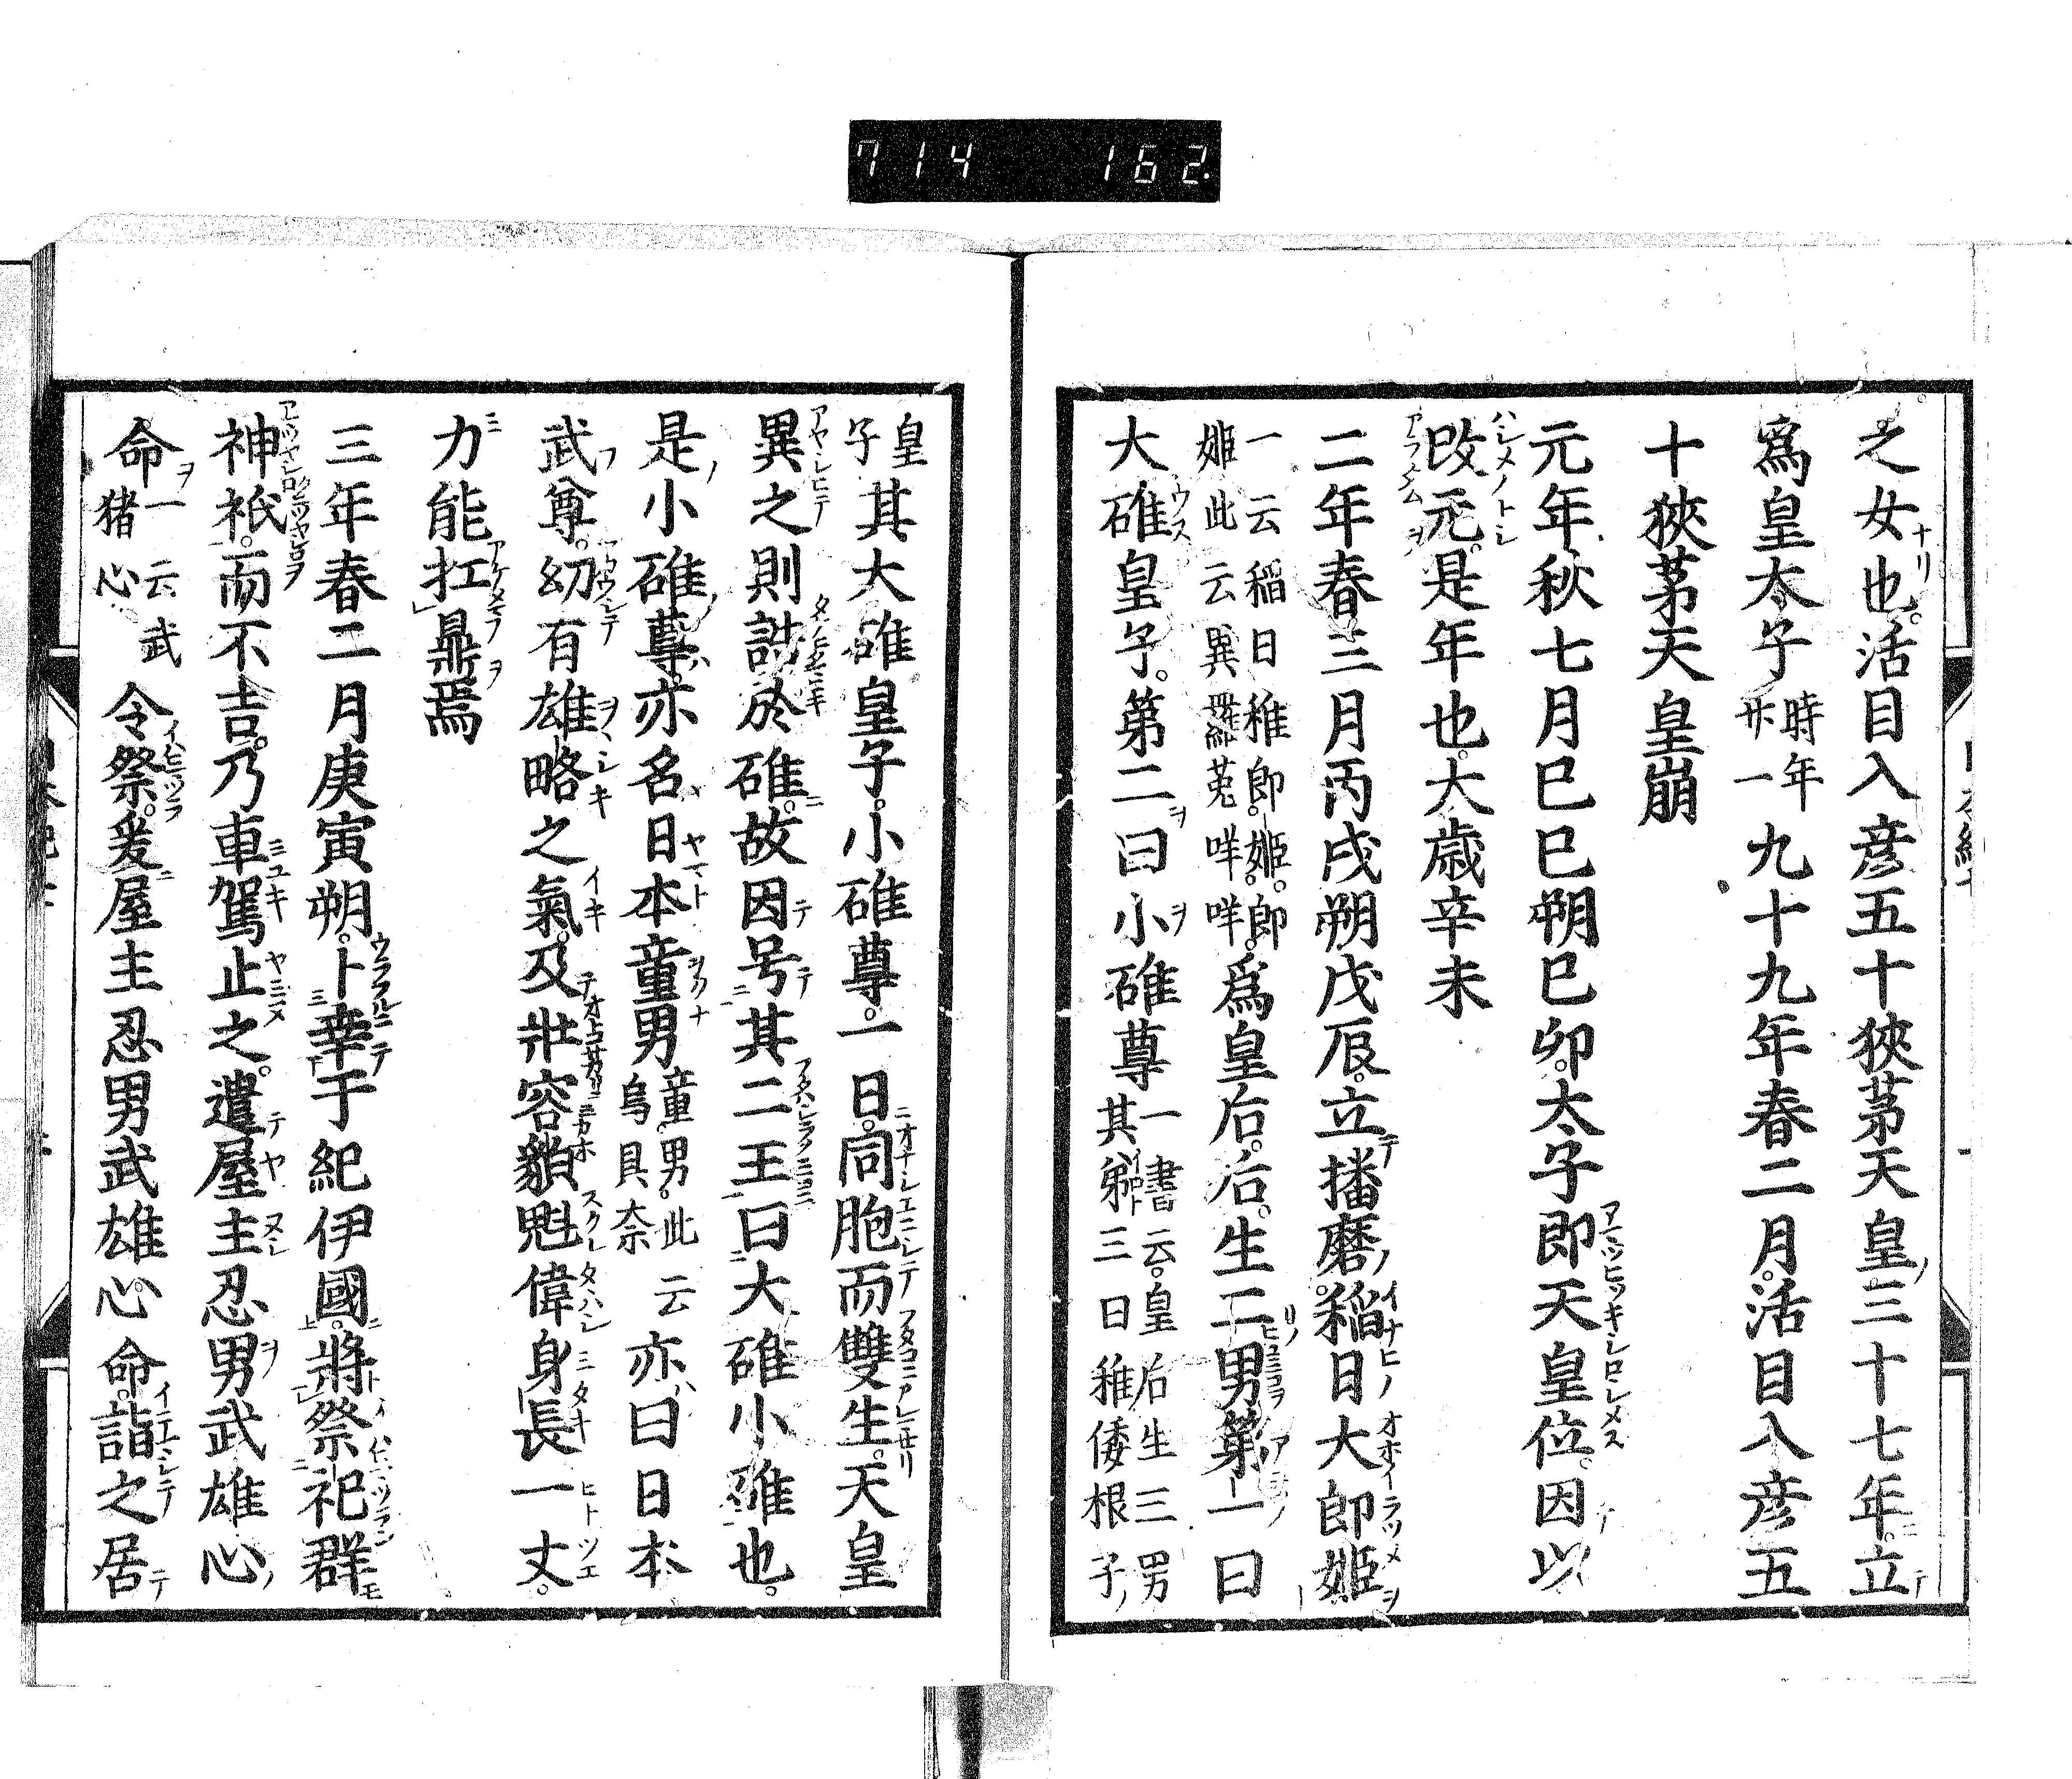 714 162.
之女也。活目入彦五十狹茅天皇三十七年。立
爲皇太子時年廿一九十九年春二月。活目入彦五
十狹茅天皇崩
元年秋七月己巳朔己卯。太子即天皇位。因以
改元。是年也。大歳辛未
二年春三月丙戌朔戊辰。立播磨稲日大郎姫
一云稲日稚郎姫。郎姫此云異羅菟咩爲皇后。后。生二男第一曰
大碓皇子。第二曰小碓尊一書云。皇后生三男其第三曰稚倭根子
皇子其大碓皇子。小碓尊。一日。同胞而雙生。天皇
異之則誥於碓。故因号其二王曰大碓小碓也。
是小碓尊。亦名日本童男童男。此云烏具奈亦曰日本
武尊。幼有雄略之氣。及壯容貌魁偉身長一丈。
力能扛鼎焉
三年春二月庚寅朔。卜幸于紀伊國。將祭祀群
神祇。而不吉。乃車駕止之。遣屋主忍男武雄心
命一云武猪心令祭。爰屋主忍男武雄心命。詣之居